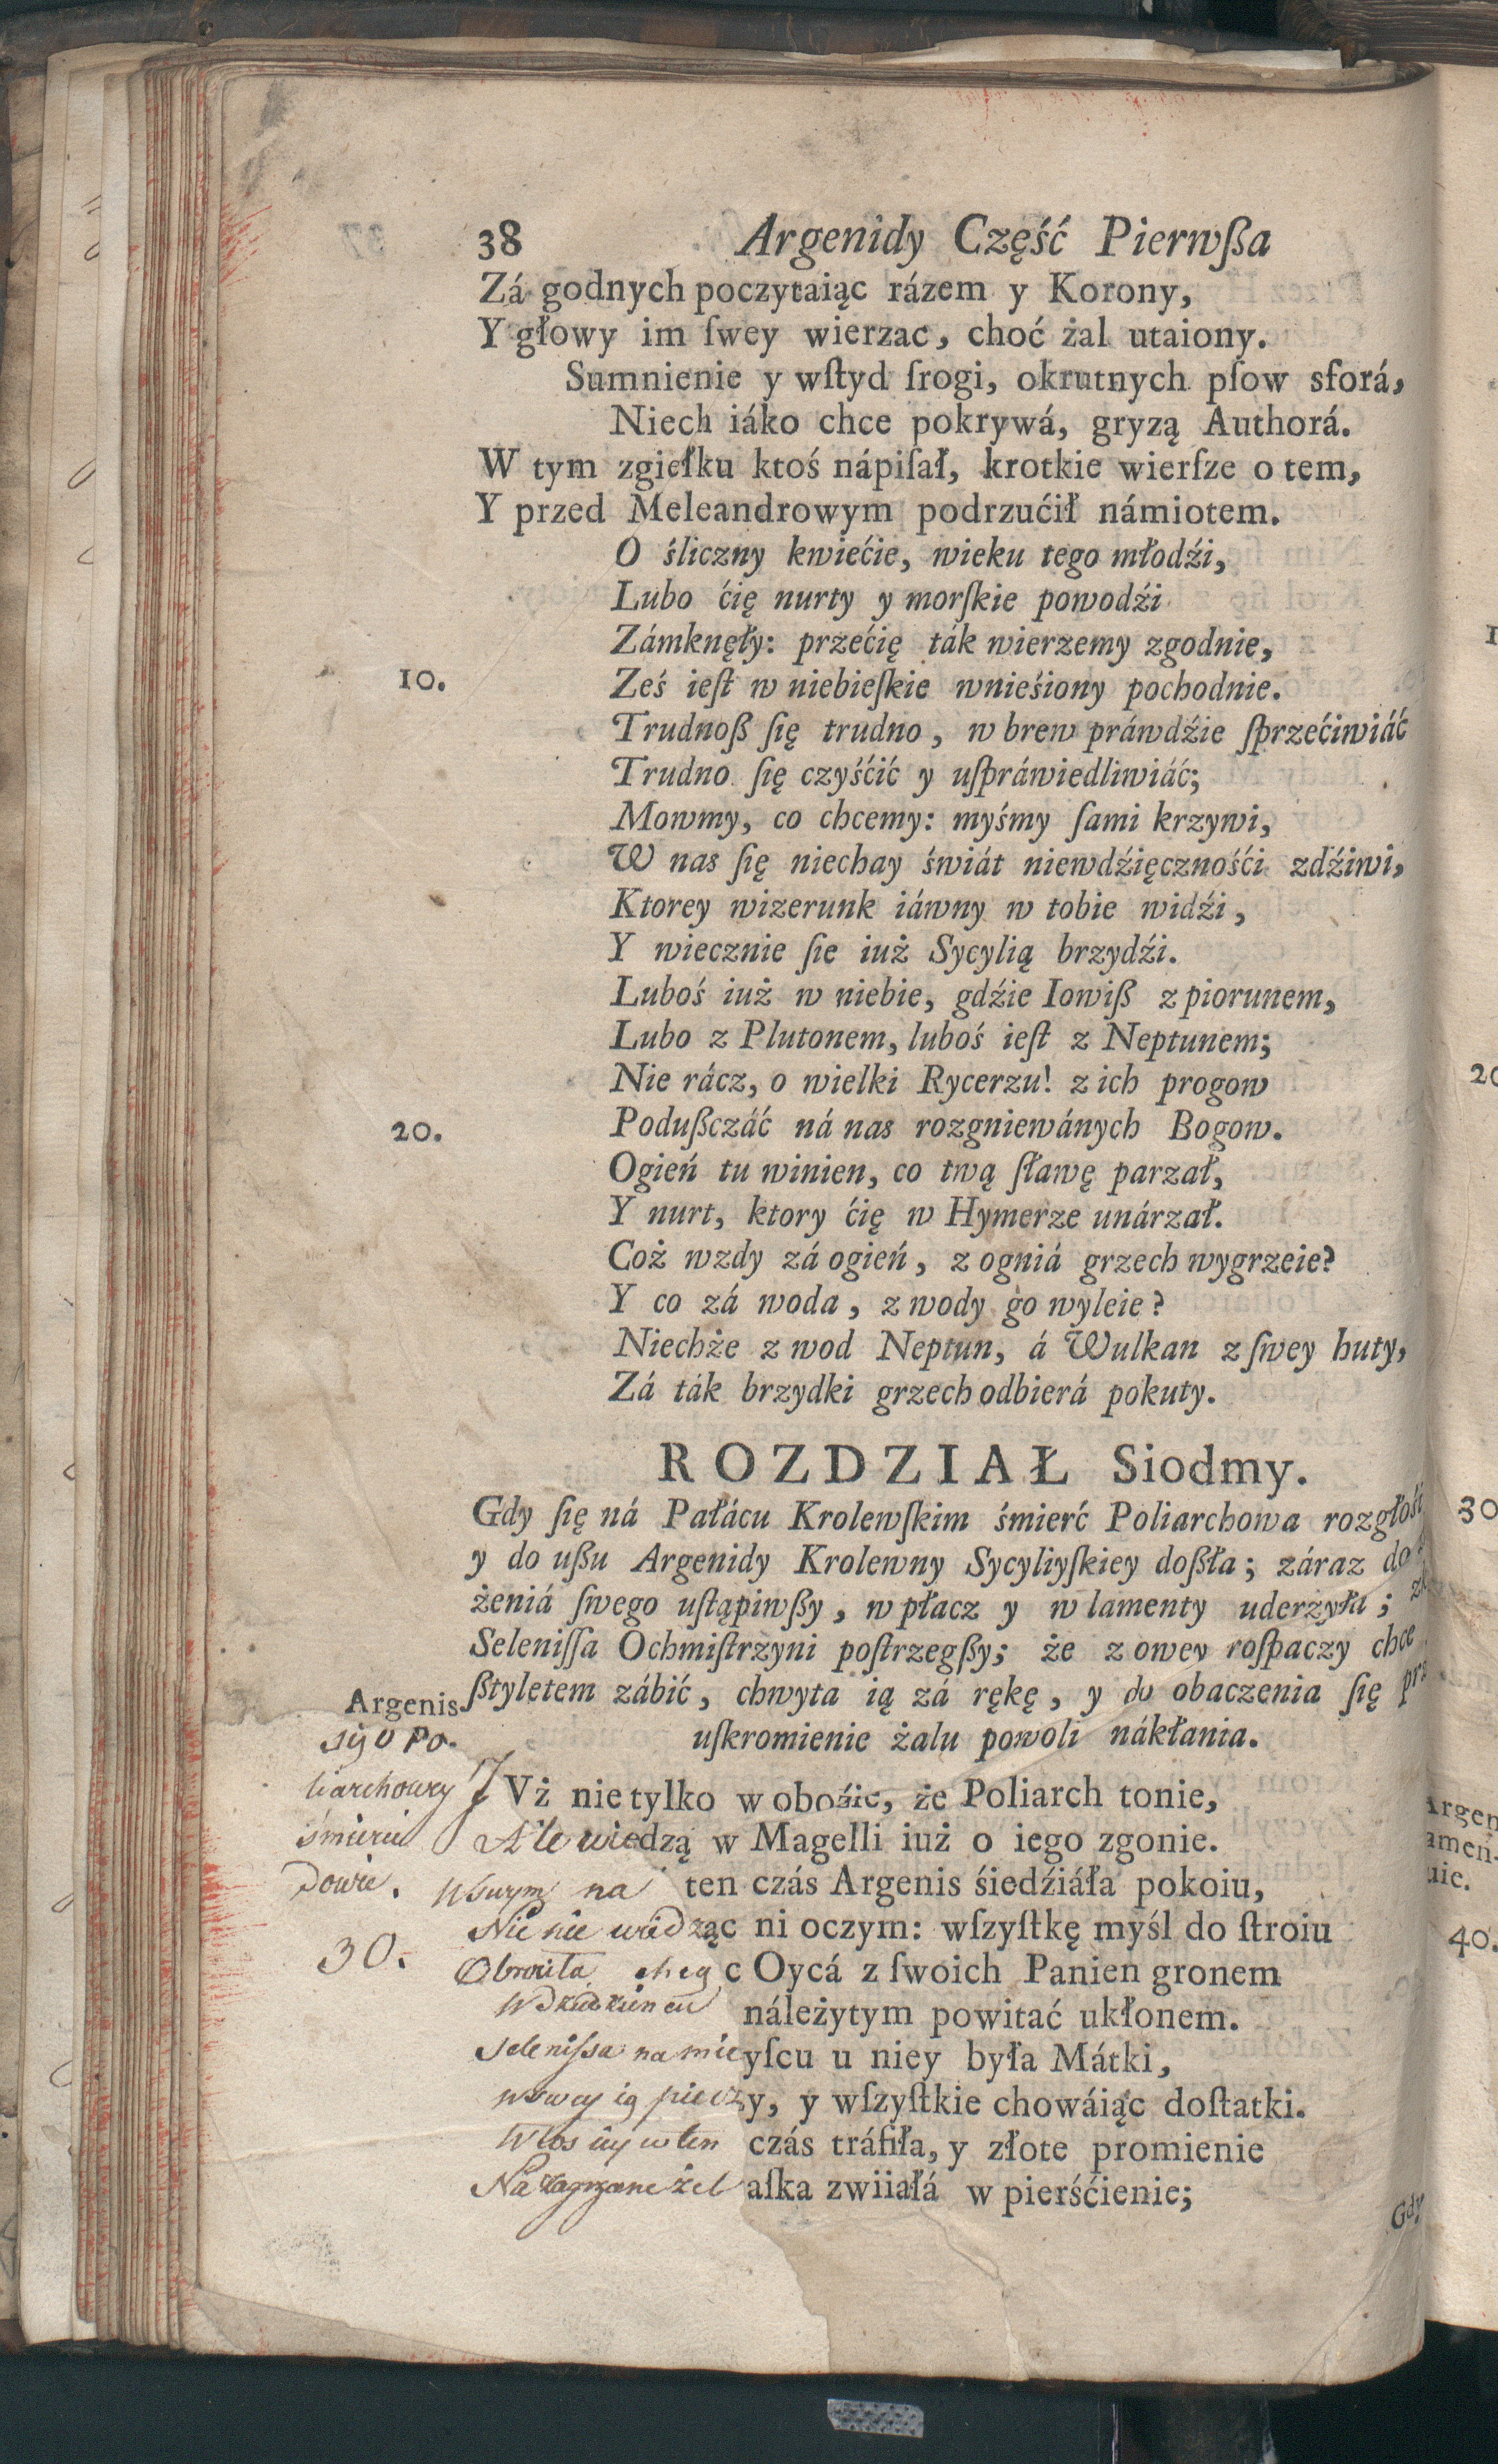 38 Argenidy Część Pierwßa
Zá godnych poczytaiąc rázem y Korony,
Y głowy im ſwey wierzac, choć żal utaiony.
Sumnienie y wſtyd ſrogi, okrutnych pſow sforá,
Niech iáko chce pokrywá, gryzą Authorá.
W tym zgiełku ktoś nápiſał, krotkie wierſze o tem,
Y przed Meleandrowym podrzućił námiotem.
O śliczny kwiećie, wieku tego młodźi,
Lubo ćię nurty y morſkie powodźi
Zámknęły: przećię ták wierzemy zgodnie,
10.Ześ ieſt w niebieſkie wnieśiony pochodnie.
Trudnoß ſię trudno, w brew práwdźie ſprzećiwiáć
Trudno ſię czyśćić y uſpráwiedliwiáć;
Mowmy, co chcemy: myśmy ſami krzywi,
W nas ſię niechay świát niewdźięcznośći zdźiwi,
Ktorey wizerunk iáwny w tobie widźi,
Y wiecznie ſie iuż Sycylią brzydźi.
Luboś iuż w niebie, gdźie Iowiß z piorunem,
Lubo z Plutonem, luboś ieſt z Neptunem;
Nie rácz, o wielki Rycerzu! z ich progow
20. Podußczáć ná nas rozgniewánych Bogow.
Ogień tu winien, co twą ſławę parzał,
Y nurt, ktory ćię w Hymerze unárzał.
Coż wzdy zá ogień, z ogniá grzech wygrzeie?
Y co zá woda, z wody go wyleie?
Niechże z wod Neptun, á Wulkan z ſwey huty,
Zá ták brzydki grzech odbierá pokuty.
ROZDZIAŁ Siodmy.
Gdy ſię ná Pałácu Krolewſkim śmierć Poliarchowa rozgłośi
y do ußu Argenidy Krolewny Sycyliyſkiey doßła; záraz do
żeniá ſwego uſtąpiwßy, w płacz y w lamenty uderzyła;
Seleniſſa Ochmiſtrzyni poſtrzegßy; że z owey roſpaczy chce
ßtyletem zábić, chwyta ią zá rękę, y do obaczenia ſię prz
uſkromienie żalu powoli nákłania.
Argenis
się o Po-
liarchowey
śmierci
dowie.
IVż nie tylko w oboźie, że Poliarch tonie,
Ale wiedzą w Magelli iuż o iego zgonie.
Wswym na ten czás Argenis śiedźiáła pokoiu,
Nic nie widząc ni oczym: wſzyſtkę myśl do ſtroiu
30. Obrociła chcąc Oycá z ſwoich Panien gronem
náleżytym powitać ukłonem.
Selenissa na mieyſcu u niey była Mátki,
wswey ią pieczy, y wſzyſtkie chowáiąc doſtatki.
Włos iey w ten czás tráfiła, y złote promienie
Na zagrzane żelaſka zwiiałá w pierśćienie;
Gdy